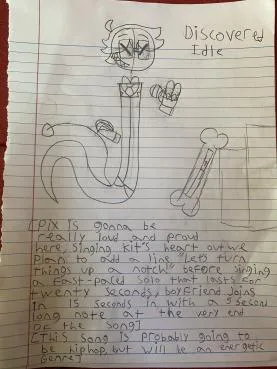 Discovered
Idle
[Pix is gonna be
really loud and proud
here, singing Kit's heart out we
Plan to add a line "Let's turn
things up a notch" before singing
a fast-paced solo that lasts for
twenty seconds, boyfriend joins
in 15 seconds in with a 5 second
long note at the very end
of the song]
[This song is probably going to
be hiphop, but will be an energetic
genre]